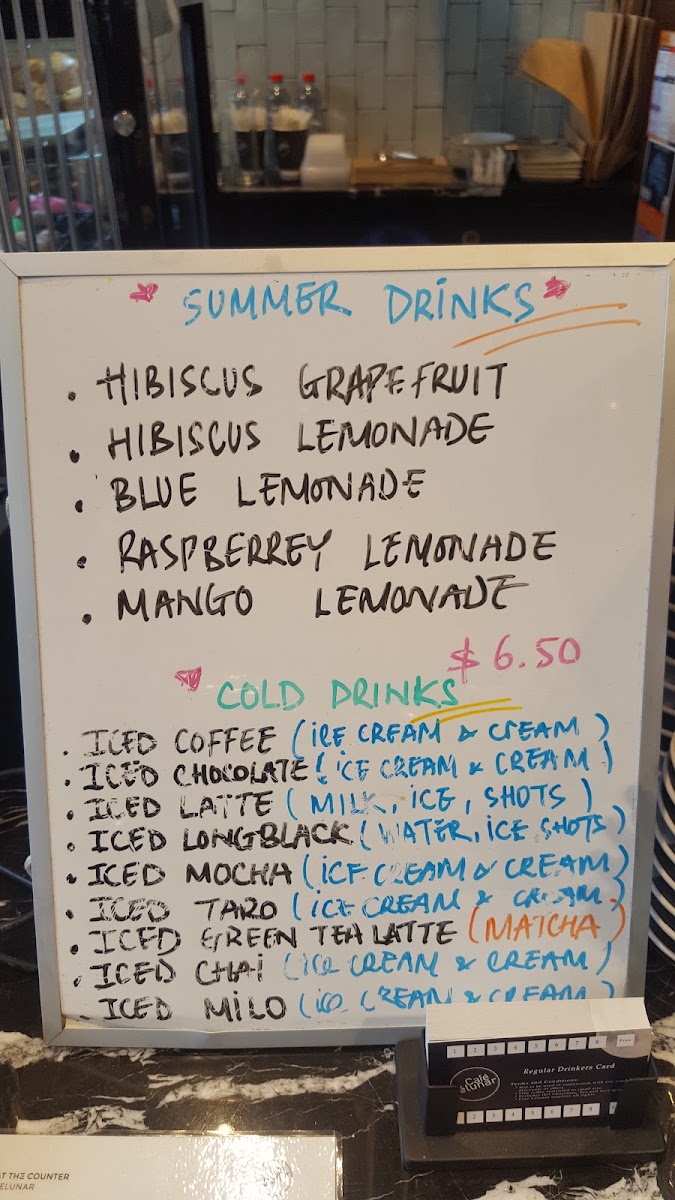 SUMMER DRINKS
. HIBISCUS GRAPEFRUIT
. HIBISCUS LEMONADE
. BLUE LEMONADE
. RASPBERREY LEMONADE
. MANGO LEMONADE
$6.50
COLD DRINKS
. ICED COFFEE (ICE CREAM & CREAM)
. ICED CHOCOLATE (ICE CREAM & CREAM)
. ICED LATTE (MILK, ICE, SHOTS)
. ICED LONGBLACK (WATER, ICE SHOTS)
. ICED MOCHA (ICE CREAM & CREAM)
. ICED TARO (ICE CREAM & CREAM)
. ICED GREEN TEA LATTE (MATCHA)
. ICED CHAI (ICE CREAM & CREAM)
. ICED MILO (ICE CREAM & CREAM)
1 2 3 4 5 6 7 8 Free
Café
elunar
Regular Drinkers Card
Terms and Conditions
1 2 3 4 5 6 7 8
AT THE COUNTER
ELUNAR